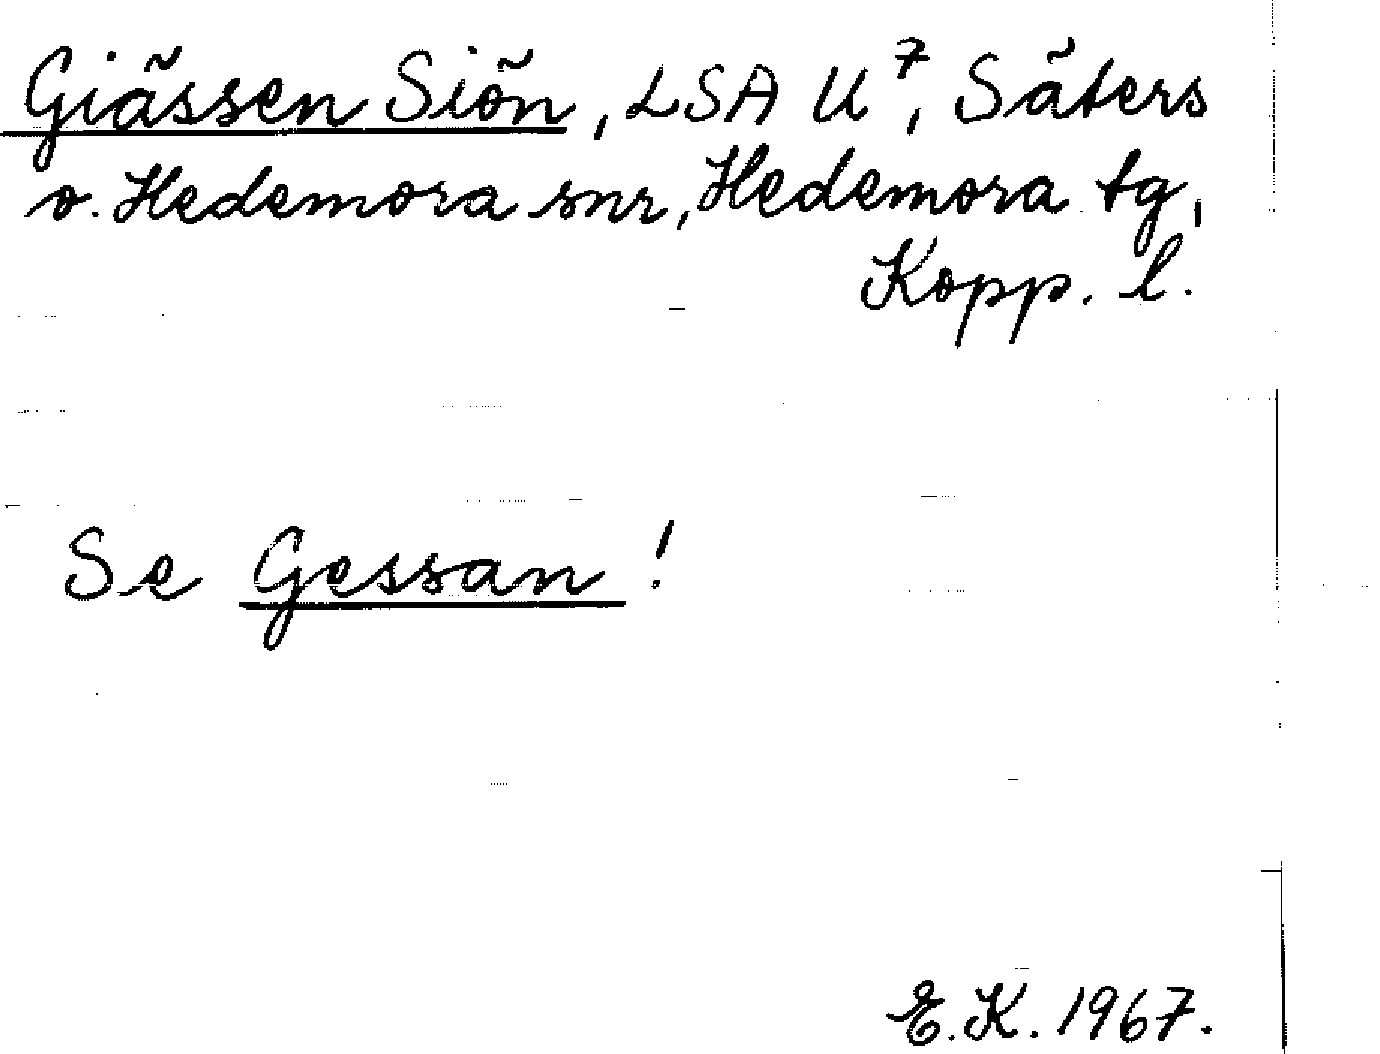 Giässen Siön, LSA U⁷, Säters
o. Hedemora snr, Hedemora tg,
Kopp. l.
Se Gessan!
E.K. 1967.